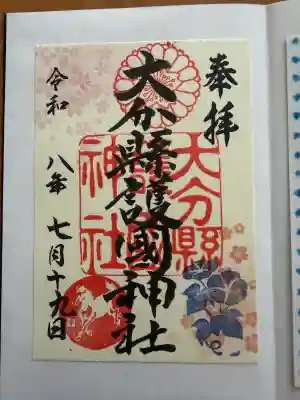 奉拝
大分縣護國神社
大分縣
神社
令和八年七月十九日